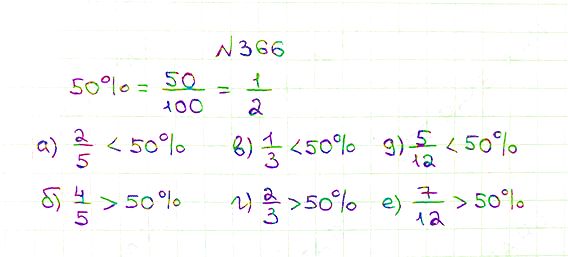 №366
50% = 50/100 = 1/2
а) 2/5 < 50% в) 1/3 < 50% д) 5/12 < 50%
б) 4/5 > 50% г) 2/3 > 50% е) 7/12 > 50%